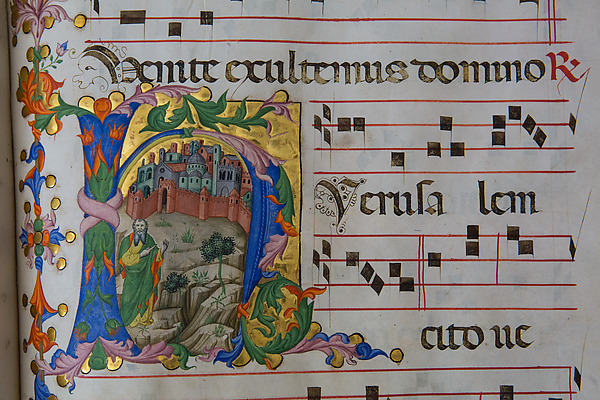 Venite exultemus domino ℟
H
Ierusa lem
cito ue